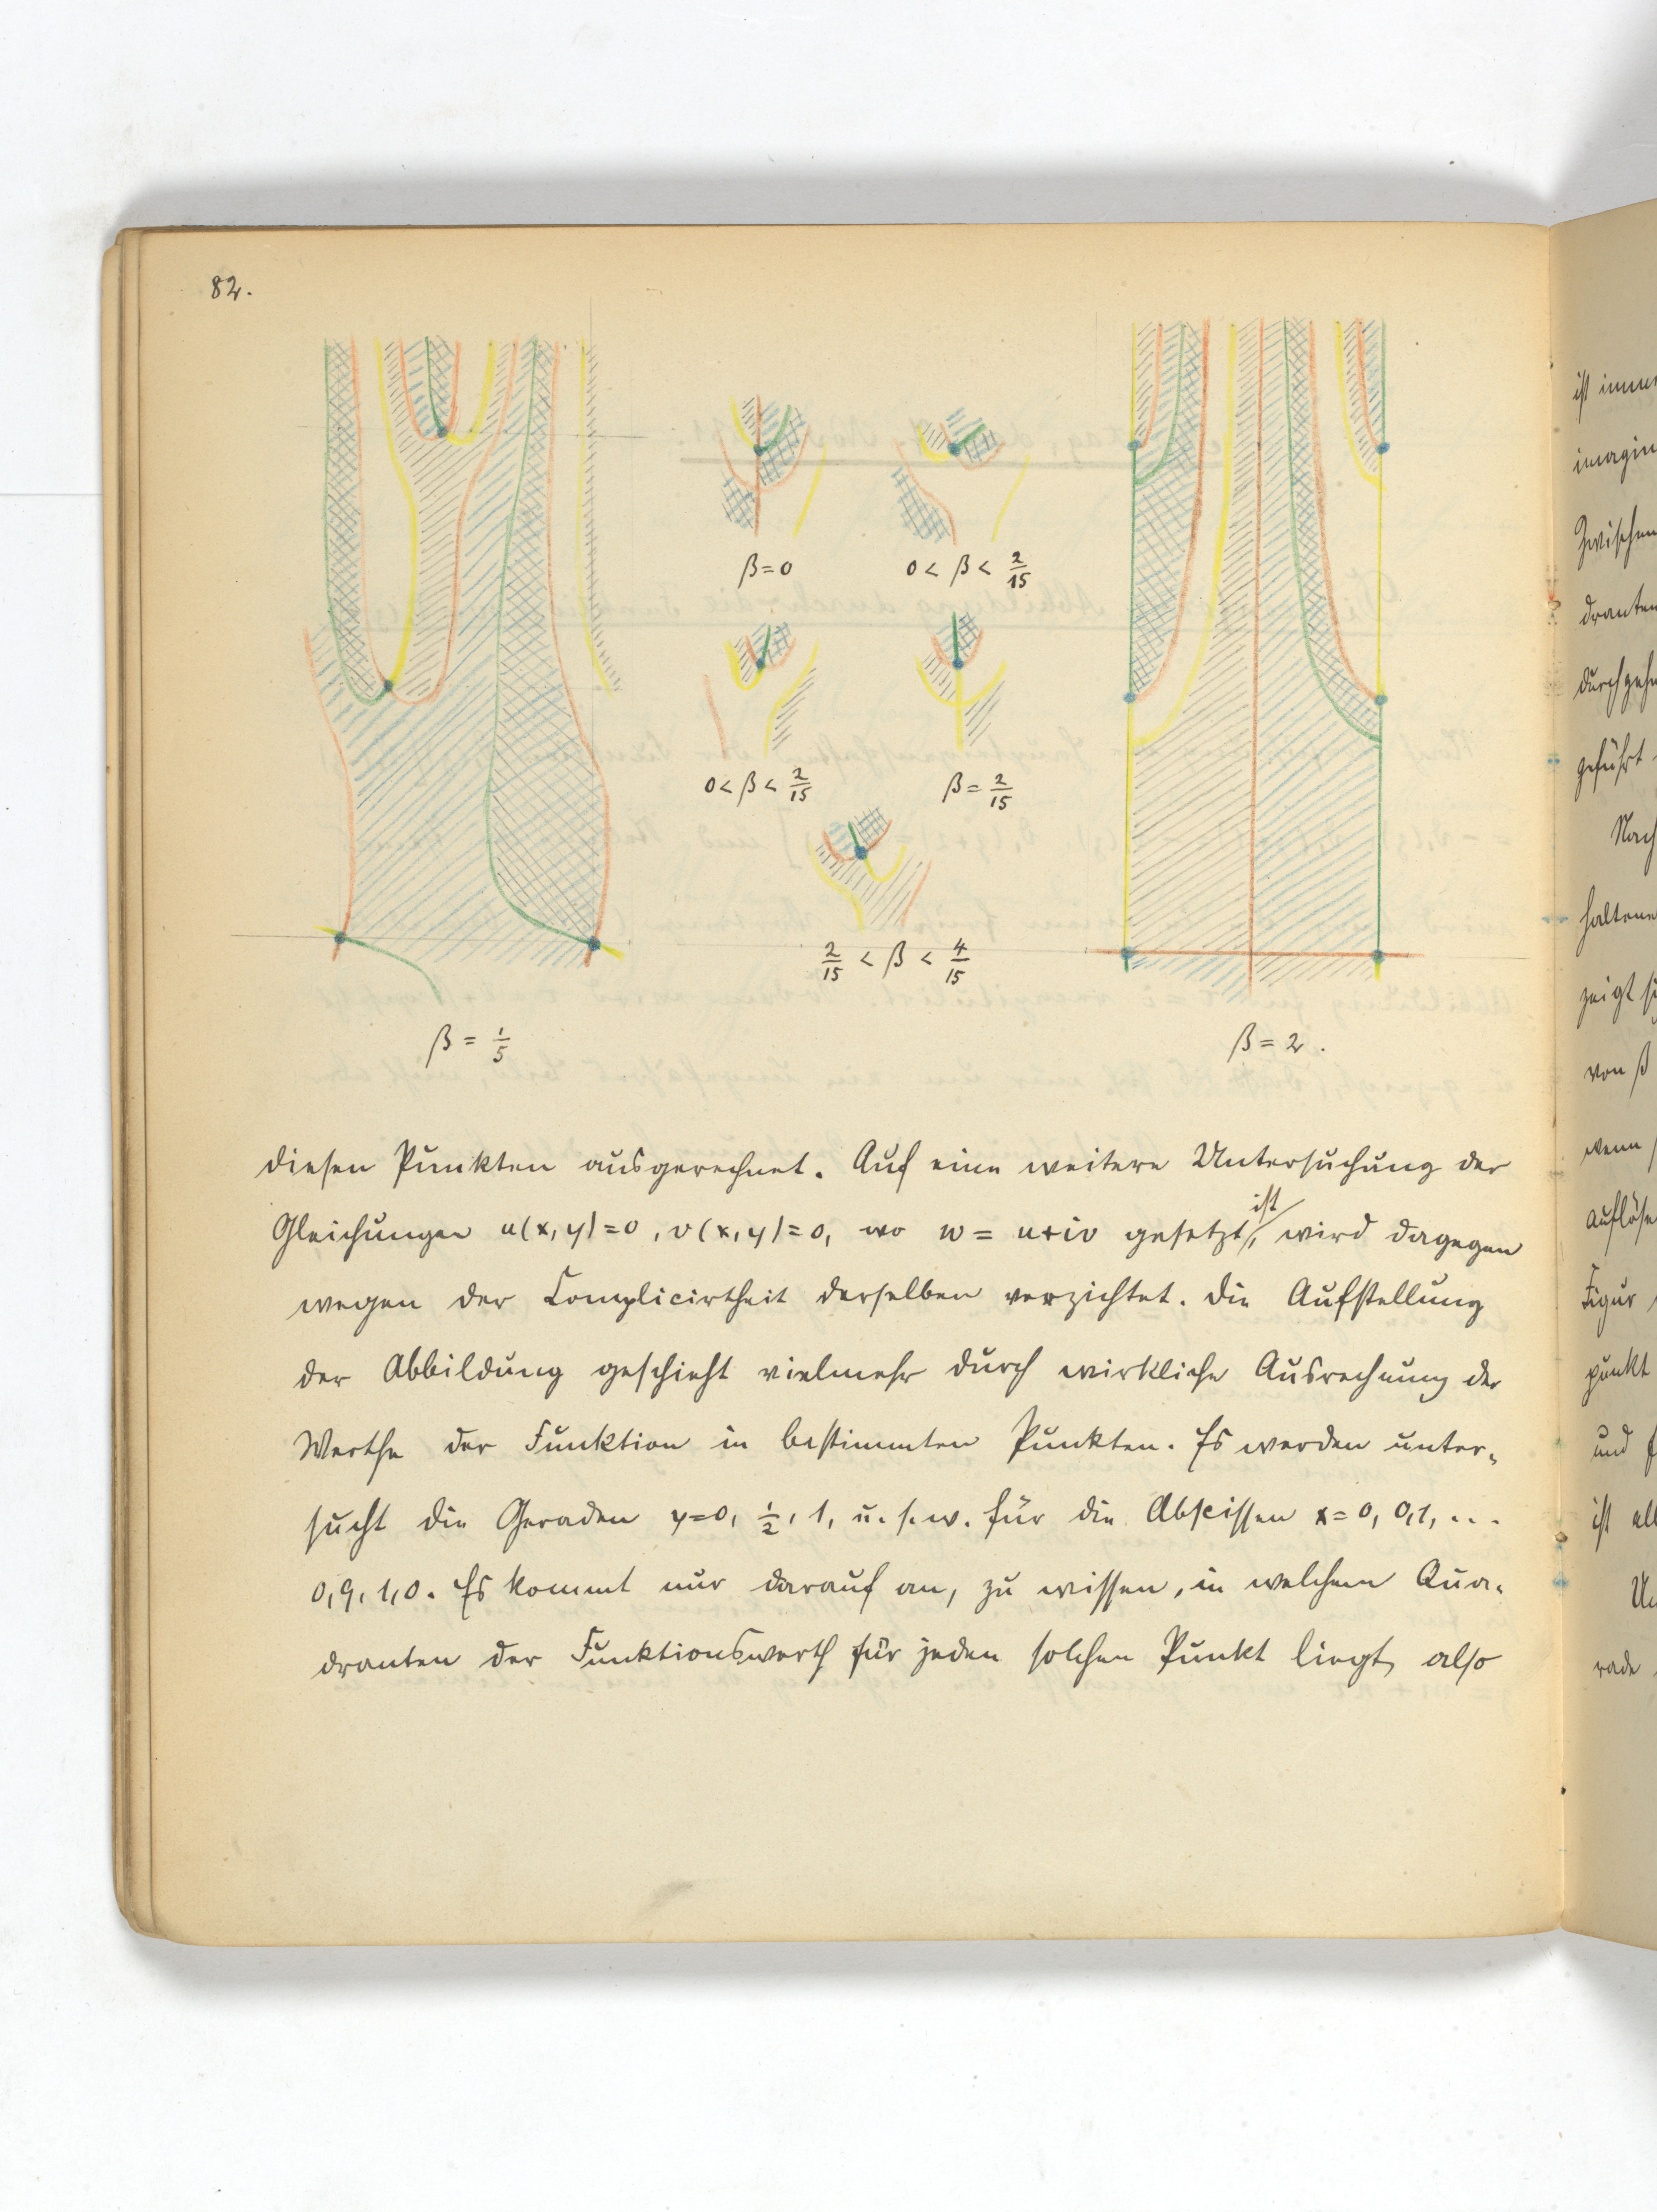 82.
β = 0
0 < β < 2/15
0 < β < 2/15
β = 2/15
2/15 < β < 4/15
β = 1/5
β = 2.
diesen Punkten ausgerechnet. Auf eine weitere Untersuchung der
Gleichungen u(x,y)=0, v(x,y)=0, wo w = u+iv gesetzt ist, wird dagegen
wegen der Complicirtheit derselben verzichtet. Die Aufstellung
der Abbildung geschieht vielmehr durch wirkliche Ausrechnung der
Werthe der Funktion in bestimmten Punkten. Es werden unter-
sucht die Geraden y=0, 1/2, 1, u. s. w. für die Abscissen x=0, 0,1, ...
0,9, 1,0. Es kommt nur darauf an, zu wissen, in welchem Qua-
dranten der Funktionswerth für jeden solchen Punkt liegt, also
ist
Zwischen
geführt
Nach
von β
wenn
Figur
punkt
und
ist